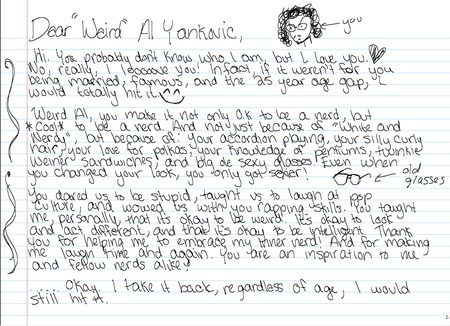 Dear "Weird" Al Yankovic,
← you
Hi. You probably don't know who I am, but I love you.
No, really, I looooove you! In fact, if it weren't for you
being married, famous, and the 25 year age gap, I
would totally hit it.
Weird Al, you make it not only OK to be a nerd, but
*cool* to be a nerd. And not just because of "White and
Nerdy", but because of: your accordion playing, your silly curly
hair, your love for polkas, your knowledge of Pentiums, twinkie
weiner sandwiches, and big ole sexy glasses. Even when
you changed your look, you only got sexier!
← old
glasses
You dared us to be stupid, taught us to laugh at pop
culture, and wowed us with you rapping skills. You taught
me, personally, that it's okay to be weird. It's okay to look
and act different, and that it's okay to be intelligent. Thank
you for helping me to embrace my inner nerd! And for making
me laugh time and again. You are an inspiration to me
and fellow nerds alike!
Okay. I take it back, regardless of age, I would
still hit it.